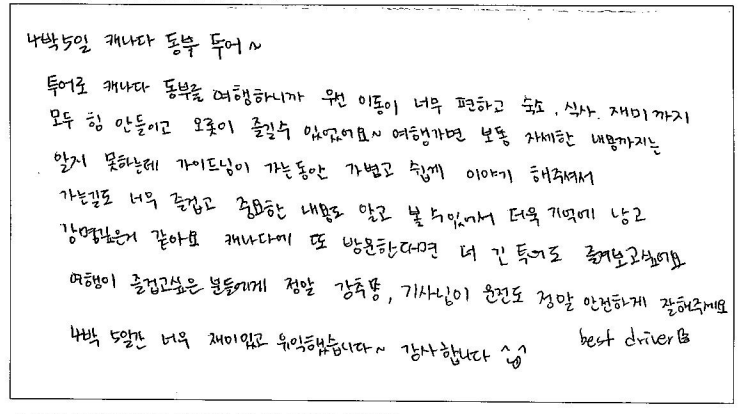 4박5일 캐나다 동부 투어~
투어로 캐나다 동부를 여행하니까 우선 이동이 너무 편하고 숙소, 식사, 재미까지
모두 힘 안들이고 오롯이 즐길수 있었어요~ 여행가면 보통 자세한 내용까지는
알지 못하는데 가이드님이 가는동안 가볍고 쉽게 이야기 해주셔서
가는길도 너무 즐겁고 중요한 내용도 알고 볼 수 있어서 더욱 기억에 남고
감명깊은거 같아요 캐나다에 또 방문한다면 더 긴 투어도 즐겨보고싶어요
여행이 즐겁고싶은 분들에게 정말 강추명, 기사님이 운전도 정말 안전하게 잘해주세요
4박 5일간 너무 재미있고 유익했습니다~ 감사합니다 ^^ best driver